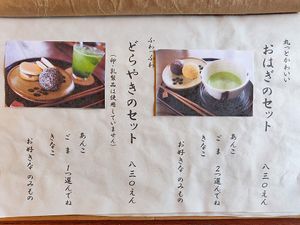 丸っとかわいい
おはぎのセット
八三〇えん
あんこ
ごま 2つ選んでね
きなこ
お好きなのみもの
ふわっふわ
どらやきのセット
(卵、乳製品は使用していません)
八三〇えん
あんこ
ごま 1つ選んでね
きなこ
お好きなのみもの